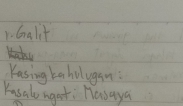 1. Galit
Kasingkahulugan:
Kasalungat: Masaya